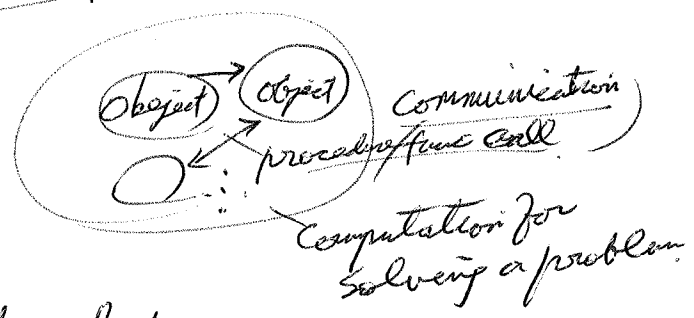 Oboject object
Communication
procedure/func call
Computation for
solving a problem